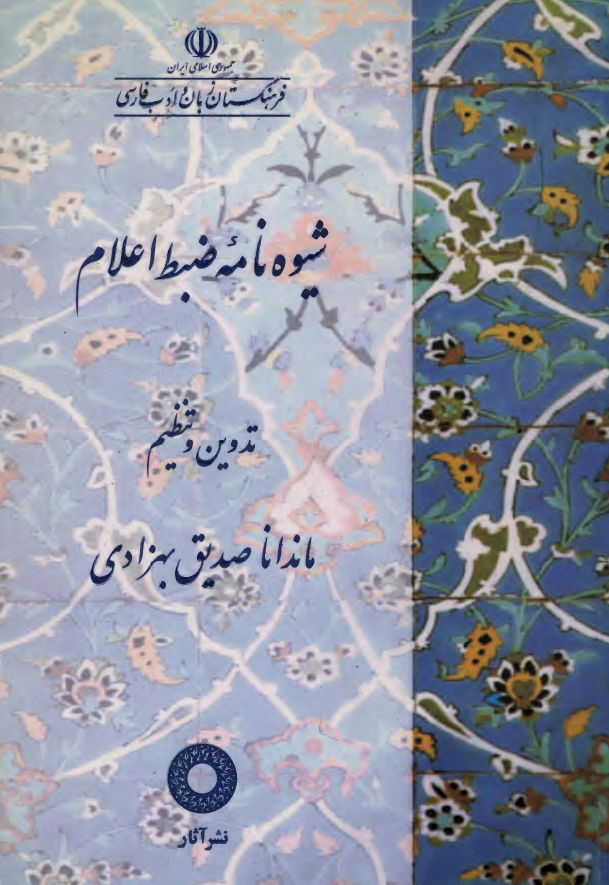 جمهوری اسلامی ایران
فرهنگستان زبان و ادب فارسی
شیوه نامهٔ ضبط اعلام
تدوین و تنظیم
ماندانا صدیق بهزادی
نشر آثار